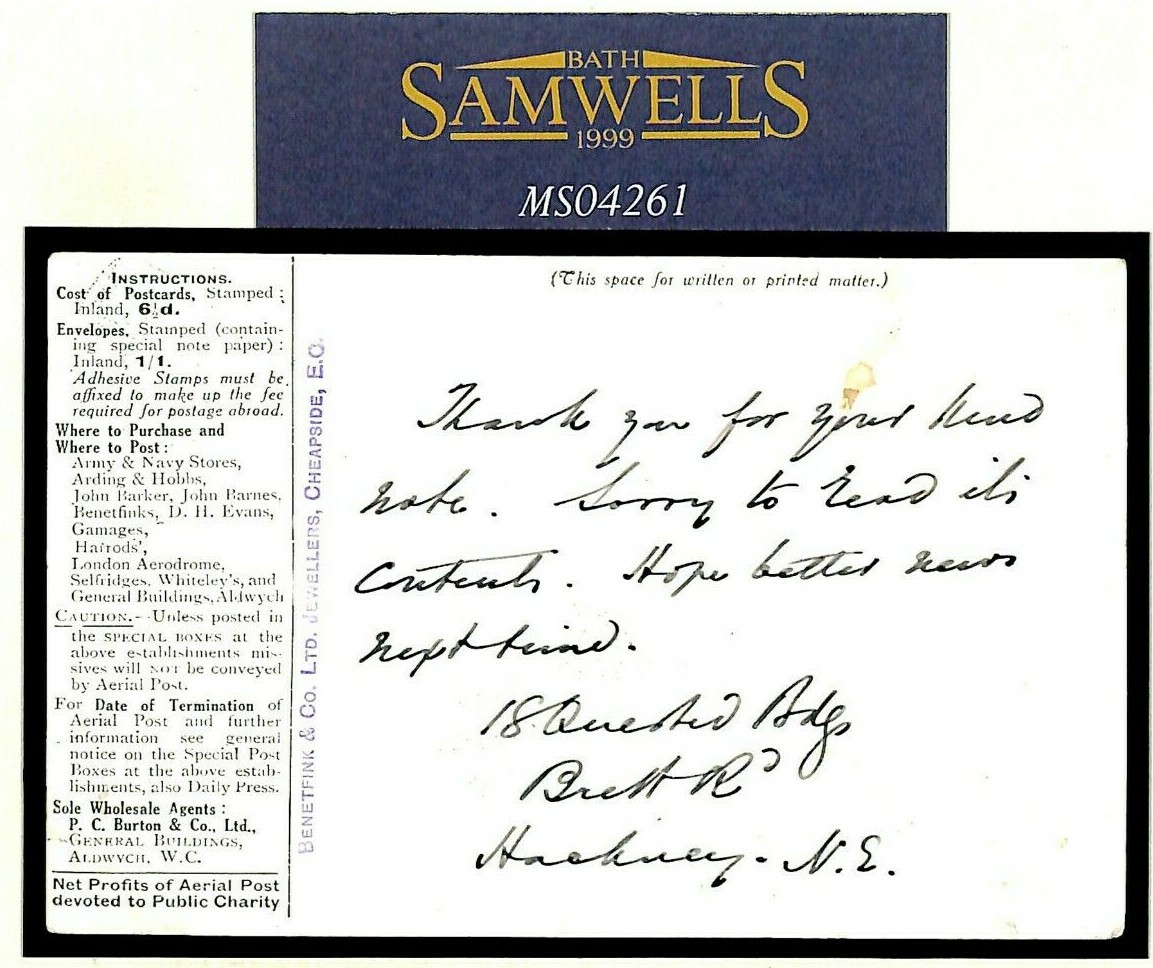 BATH
SAMWELLS
1999
MS04261
INSTRUCTIONS.
Cost of Postcards, Stamped :
Inland, 6½d.
Envelopes, Stamped (contain-
ing special note paper) :
Inland, 1/1.
Adhesive Stamps must be
affixed to make up the fee
required for postage abroad.
Where to Purchase and
Where to Post :
Army & Navy Stores,
Arding & Hobbs,
John Barker, John Barnes,
Benetfinks, D. H. Evans,
Gamages,
Harrods',
London Aerodrome,
Selfridges, Whiteley's, and
General Buildings, Aldwych
CAUTION.--Unless posted in
the SPECIAL BOXES at the
above establishments mis-
sives will NOT be conveyed
by Aerial Post.
For Date of Termination of
Aerial Post and further
information see general
notice on the Special Post
Boxes at the above estab-
lishments, also Daily Press.
Sole Wholesale Agents :
P. C. Burton & Co., Ltd.,
GENERAL BUILDINGS,
ALDWYCH, W.C.
Net Profits of Aerial Post
devoted to Public Charity
BENETFINK & Co. LTD. JEWELLERS, CHEAPSIDE, E.C.
(This space for written or printed matter.)
Thank you for your kind
note. Sorry to read its
contents. Hope better news
next time.
18 Quested Bdgs
Brett Rd
Hackney. N.E.